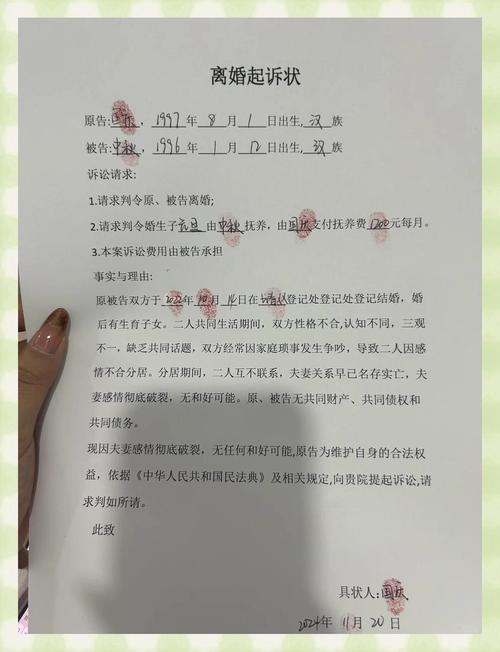 离婚起诉状
原告:国庆,1997年8月1日出生,汉族
被告:中秋,1996年1月12日出生,汉族
诉讼请求:
1.请求判令原、被告离婚;
2.请求判令婚生子元旦由中秋抚养,由国庆支付抚养费1200元每月。
3.本案诉讼费用由被告承担
事实与理由:
原被告双方于2022年10月14日在登记处登记处登记结婚,婚
后有生育子女。二人共同生活期间,双方性格不合,认知不同,三观
不一,缺乏共同话题,双方经常因家庭琐事发生争吵,导致二人因感
情不合分居。分居期间,二人互不联系,夫妻关系早已名存实亡,夫
妻感情彻底破裂,无和好可能。原、被告无共同财产、共同债权和
共同债务。
现因夫妻感情彻底破裂,无任何和好可能,原告为维护自身的合法权
益,依据《中华人民共和国民法典》及相关规定,向贵院提起诉讼,请
求判如所请。
此致
具状人:国庆
2024年11月20日